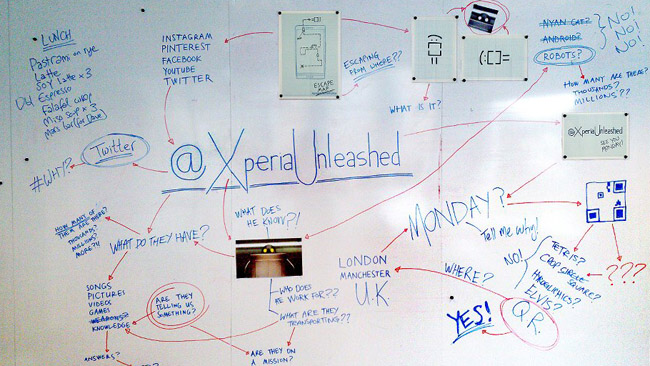 LUNCH
Pastrami on rye
Latte
Soy Latte x 3
Espresso
Falafel wrap
Miso soup x 3
Mars bar (for Dave)
INSTAGRAM
PINTEREST
FACEBOOK
YOUTUBE
TWITTER
ESCAPE
MAP
ESCAPING
FROM WHERE??
WHAT IS IT?
(:[]=
NYAN CAT?
ANDROID?
ROBOTS?
NO!
NO!
NO!
HOW MANY ARE THERE?
THOUSANDS?
MILLIONS??
Twitter
#WHY!?
@XperiaUnleashed
@XperiaUnleashed
SEE YOU
MONDAY!
HOW MANY OF
THEM ARE THERE?
THOUSANDS?
MILLIONS?
MORE?!!
WHAT DO THEY HAVE?
WHAT DOES
HE KNOW?!
MONDAY?
Tell me why!
NO!
TETRIS?
CROP CIRCLE
SQUARE?
HIEROGLYPHICS?
ELVIS?
???
SONGS
PICTURES
VIDEOS
GAMES
WEAPONS?
KNOWLEDGE
ARE THEY
TELLING US
SOMETHING?
WHO DOES
HE WORK FOR??
WHAT ARE THEY
TRANSPORTING??
LONDON
MANCHESTER
U.K.
WHERE?
Q.R.
YES!
ANSWERS?
ARE THEY ON
A MISSION?